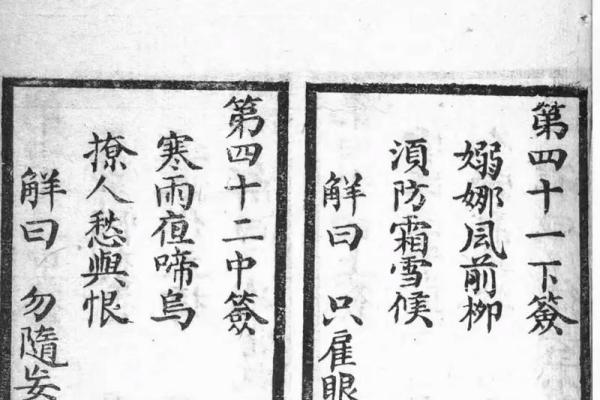 第四十一下簽
嫋娜風前柳
須防霜雪候
解曰 只雇眼
第四十二中簽
寒雨夜啼烏
撩人愁與恨
解曰 勿隨妄